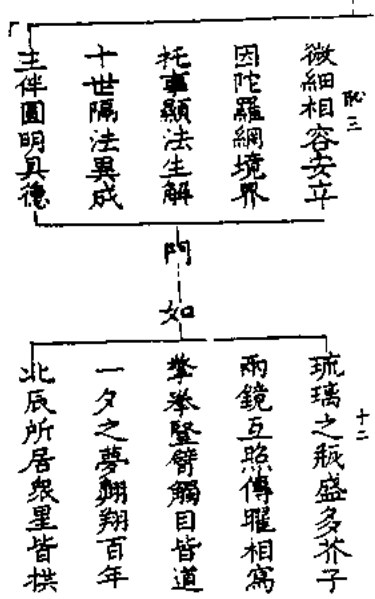 微細相容安立
恥三
因陀羅網境界
托事顯法生解
十世隔法異成
主伴圓明具德
門
如
琉璃之瓶盛多芥子
十二
兩鏡互照傳曜相寫
擎拳豎臂觸目皆道
一夕之夢翱翔百年
北辰所居衆星皆拱